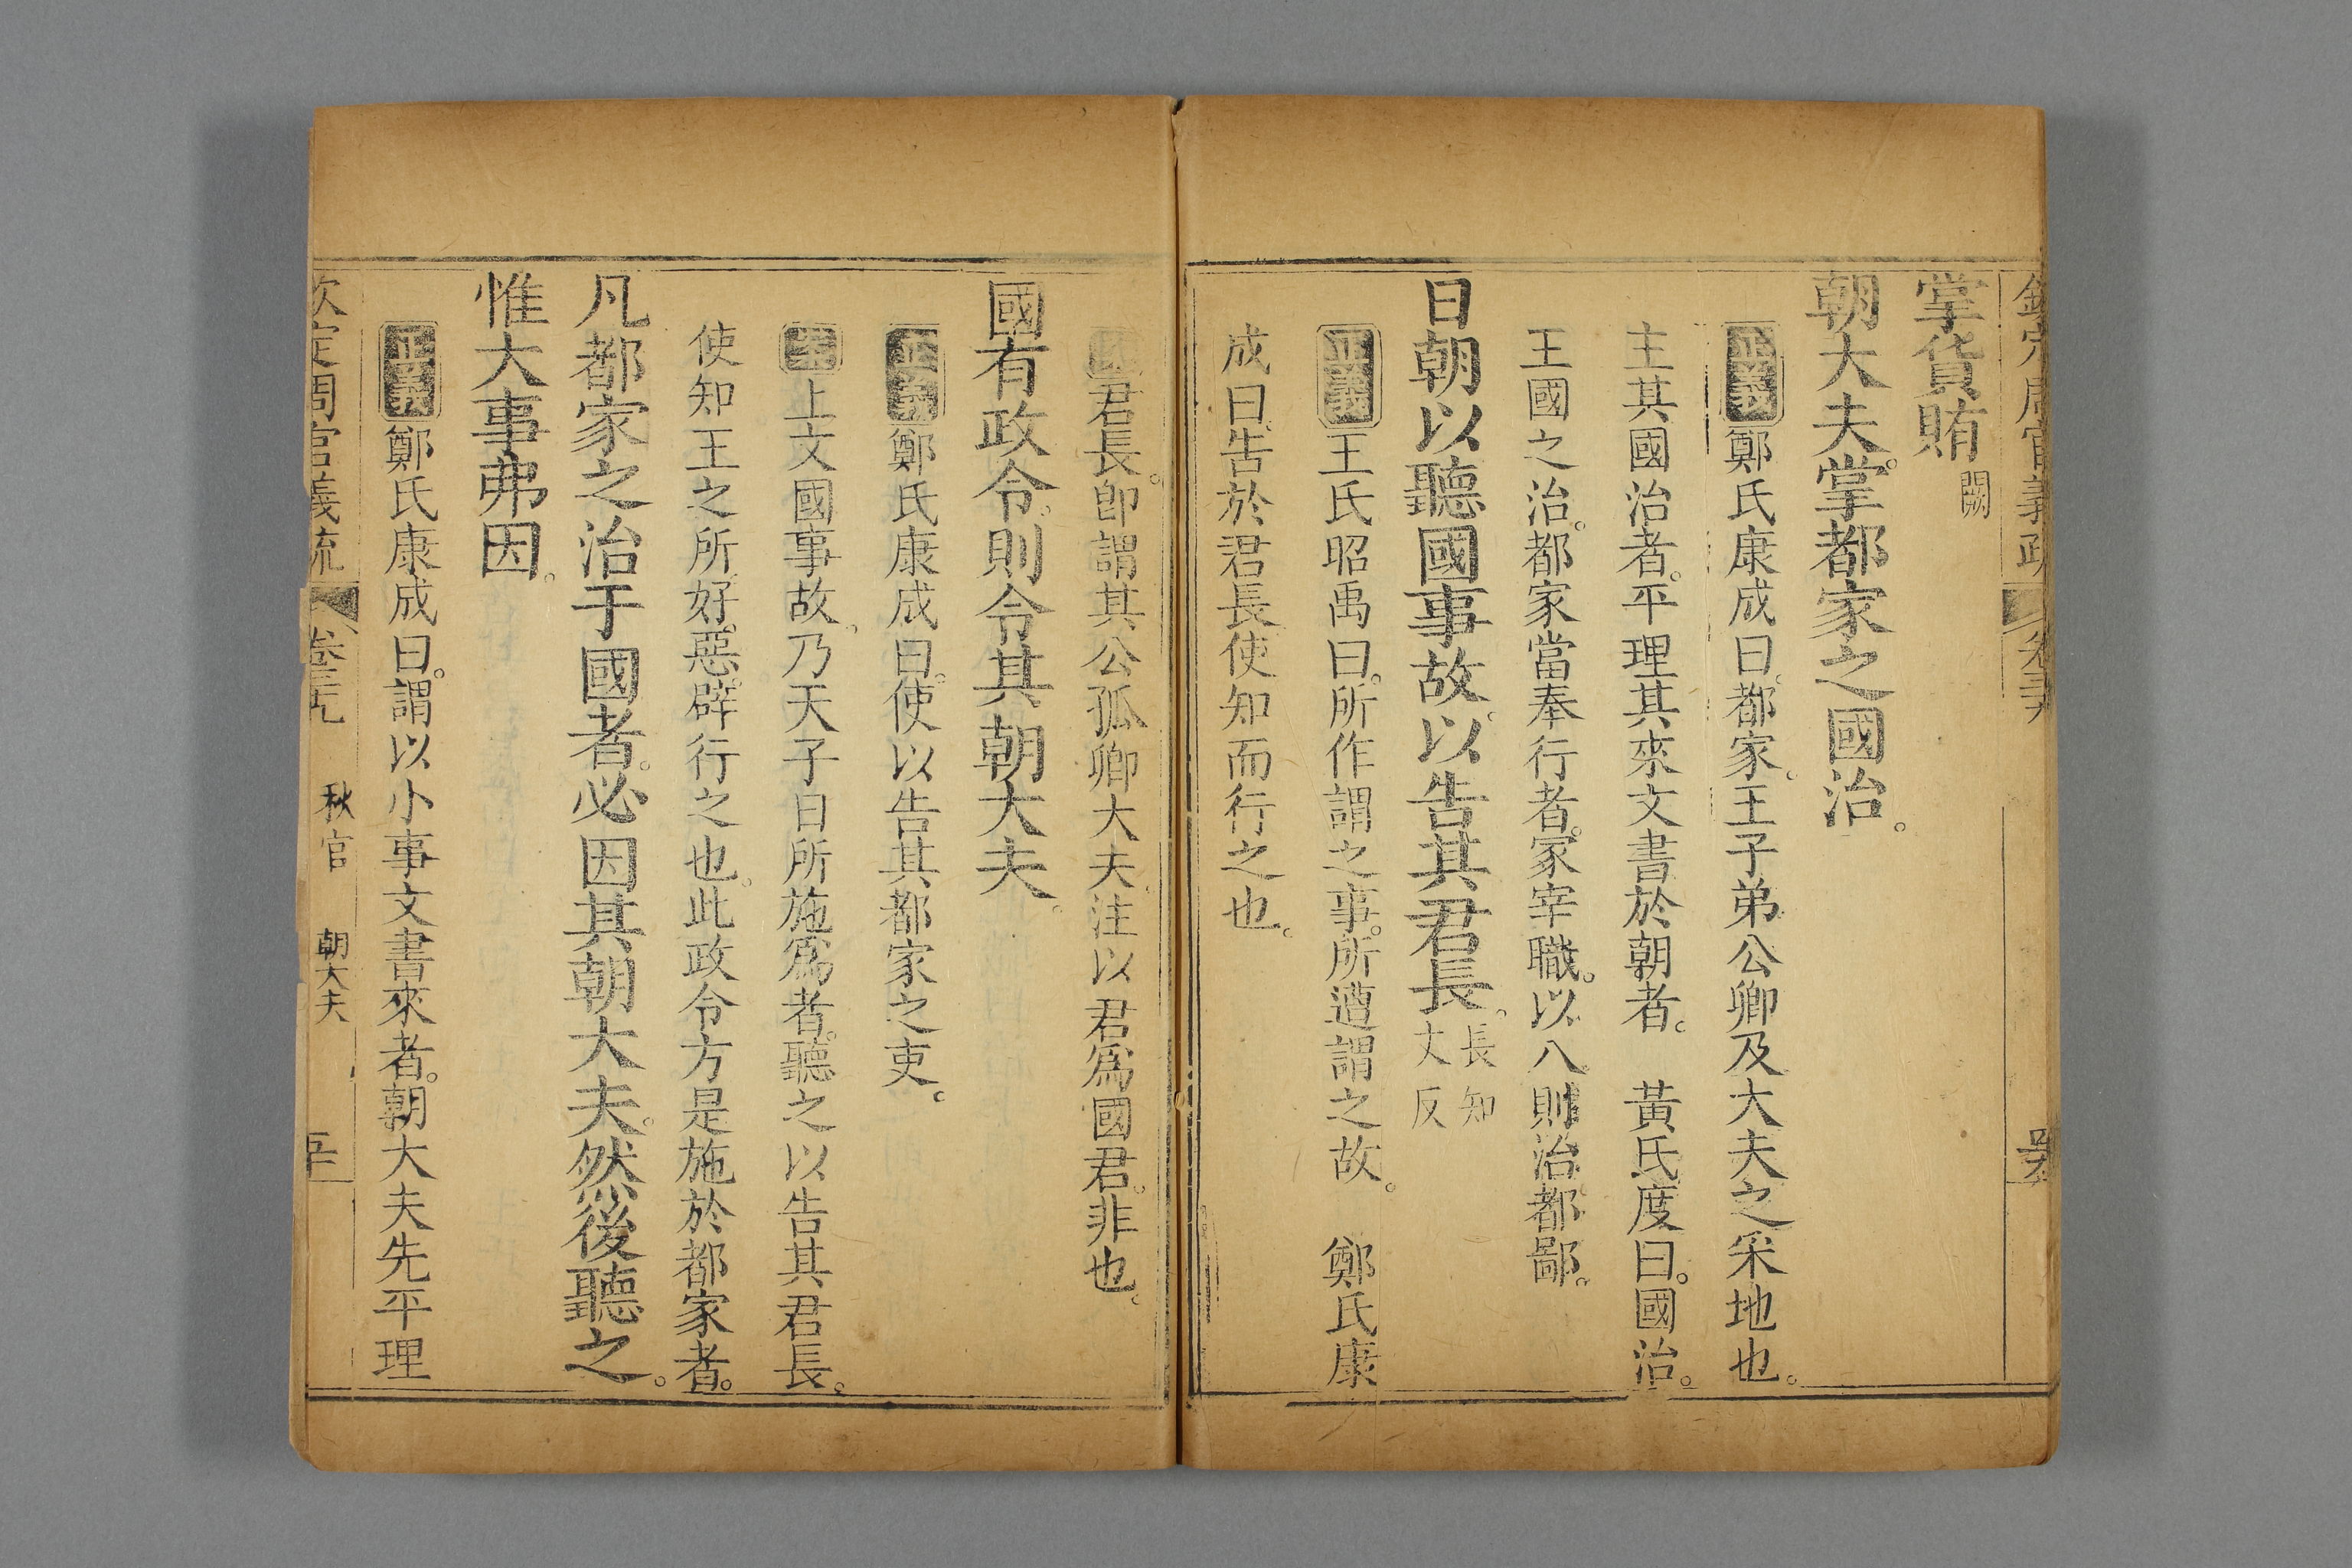 欽定周官義疏 卷三十八
掌貨賄 闕
朝大夫。掌都家之國治。
正義鄭氏康成曰。都家。王子弟公卿及大夫之采地也。
主其國治者。平理其來文書於朝者。 黃氏度曰。國治。
王國之治。都家當奉行者。冢宰職。以八則治都鄙。
日朝以聽國事故。以告其君長。長知丈反
正義王氏昭禹曰。所作謂之事。所遭謂之故。 鄭氏康
成曰。告於君長。使知而行之也。
君長。卽謂其公孤卿大夫。注以君爲國君。非也。
國有政令。則令其朝大夫。
正義鄭氏康成曰。使以告其都家之吏。
案上文國事故。乃天子日所施爲者。聽之以告其君長。
使知王之所好惡。辟行之也。此政令方是施於都家者。
凡都家之治于國者。必因其朝大夫。然後聽之。
惟大事弗因。
正義鄭氏康成曰。謂以小事文書來者。朝大夫先平理
欽定周官義疏 卷三十八 秋官 朝大夫